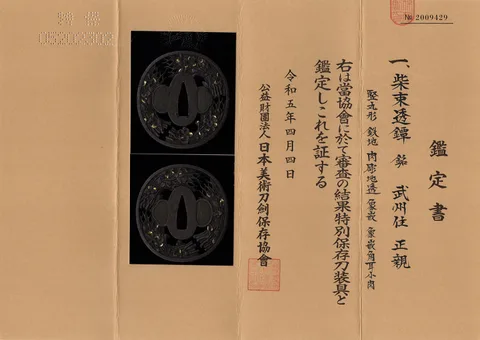 № 2009429
鑑定書
一、柴束透鐔 銘 武州住 正親
竪丸形 鉄地 肉彫地透 象嵌 象嵌 角耳小肉
右は當協會に於て審査の結果特別保存刀装具と
鑑定しこれを証する
令和五年四月四日
公益財團法人 日本美術刀劍保存協會